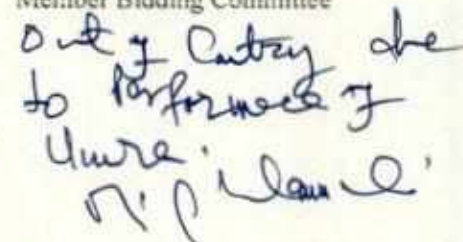 Member Bidding Committee
Out of Country due
to Performance of
Umra.